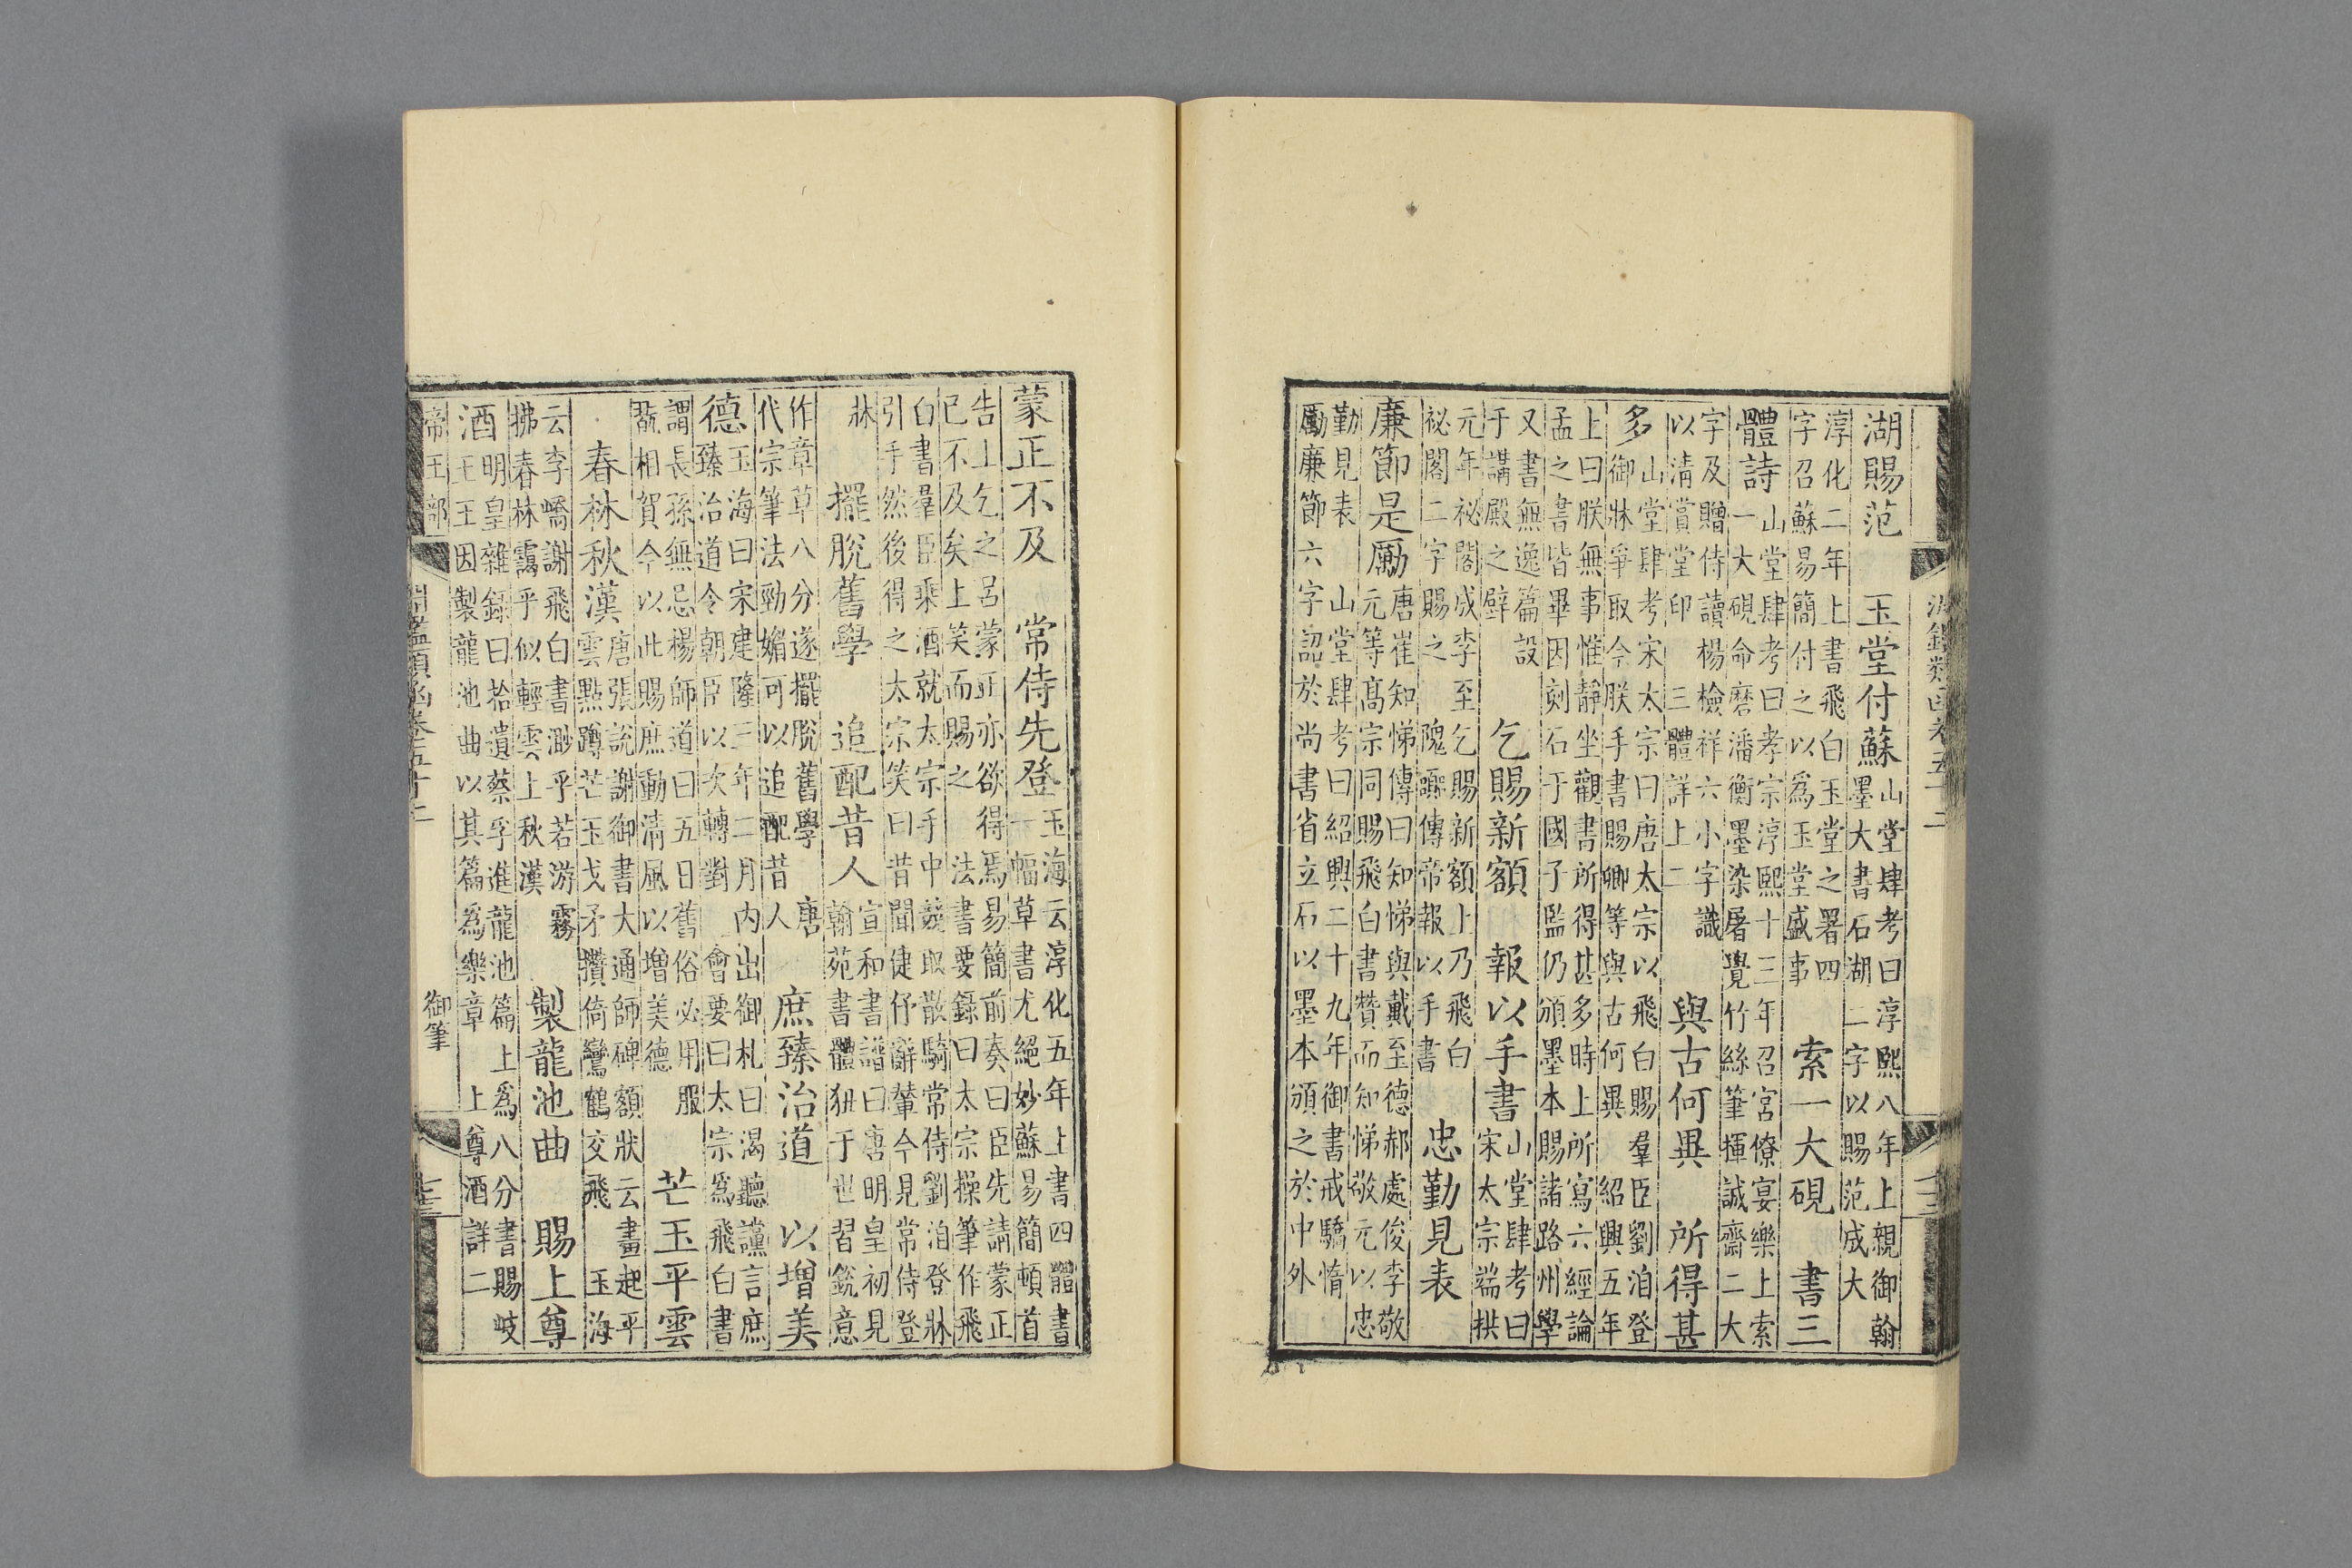 淵鑑類函卷五十二
湖賜范　玉堂付蘇
山堂肆考曰淳熙八年上親御翰
墨大書石湖二字以賜范成大
淳化二年上書飛白玉堂之署四
字召蘇易簡付之以爲玉堂盛事
索一大硯　書三
體詩
山堂肆考曰孝宗淳熙十三年召宮僚宴樂上索
一大硯命磨潘衡墨染屠覺竹絲筆揮誠齋二大
字及贈侍讀楊檢祥六小字識
以清賞堂印　三體詳上二
與古何異　所得甚
多
山堂肆考宋太宗曰唐太宗以飛白賜羣臣劉洎登
御牀爭取今朕手書賜卿等與古何異　紹興五年
上曰朕無事惟靜坐觀書所得甚多時上所寫六經論
孟之書皆畢因刻石于國子監仍頒墨本賜諸路州學
又書無逸篇設
于講殿之壁
乞賜新額　報以手書
山堂肆考曰
宋太宗端拱
元年祕閣成李至乞賜新額上乃飛白
祕閣二字賜之　隗囂傳帝報以手書
忠勤見表
廉節是勵
唐崔知悌傳曰知悌與戴至德郝處俊李敬
元等高宗同賜飛白書贊而知悌敬元以忠
勤見表　山堂肆考曰紹興二十九年御書戒驕惰
勵廉節六字詔於尚書省立石以墨本頒之於中外
蒙正不及　常侍先登
玉海云淳化五年上書四體書
一幅草書尤絕妙蘇易簡頓首
告上乞之呂蒙正亦欲得焉易簡前奏曰臣先請蒙正
已不及矣上笑而賜之　法書要錄曰太宗操筆作飛
白書羣臣乘酒就太宗手中競取散騎常侍劉洎登牀
引手然後得之太宗笑曰昔聞倢伃辭輦今見常侍登
牀
擺脫舊學　追配昔人
宣和書譜曰唐明皇初見
翰苑書體狃于世習銳意
作章草八分遂擺脫舊學　唐
代宗筆法勁媚可以追配昔人
庶臻治道　以增美
德
玉海曰宋建隆三年二月內出御札曰渴聽讜言庶
臻治道令朝臣以次轉對　會要曰太宗爲飛白書
謂長孫無忌楊師道曰五日舊俗必用服
翫相賀今以此賜庶動清風以增美德
芒玉平雲
春林秋漢
唐張說謝御書大通師碑額狀云畫起平
雲點蹲芒玉戈矛攢倚鸞鶴交飛　玉海
云李嶠謝飛白書渺乎若游霧
拂春林靄乎似輕雲上秋漢
製龍池曲　賜上尊
酒
明皇雜錄曰拾遺蔡孚進龍池篇上爲八分書賜岐
王王因製龍池曲以其篇爲樂章　上尊酒詳二
帝王部　淵鑑類函卷五十二　御筆　十三